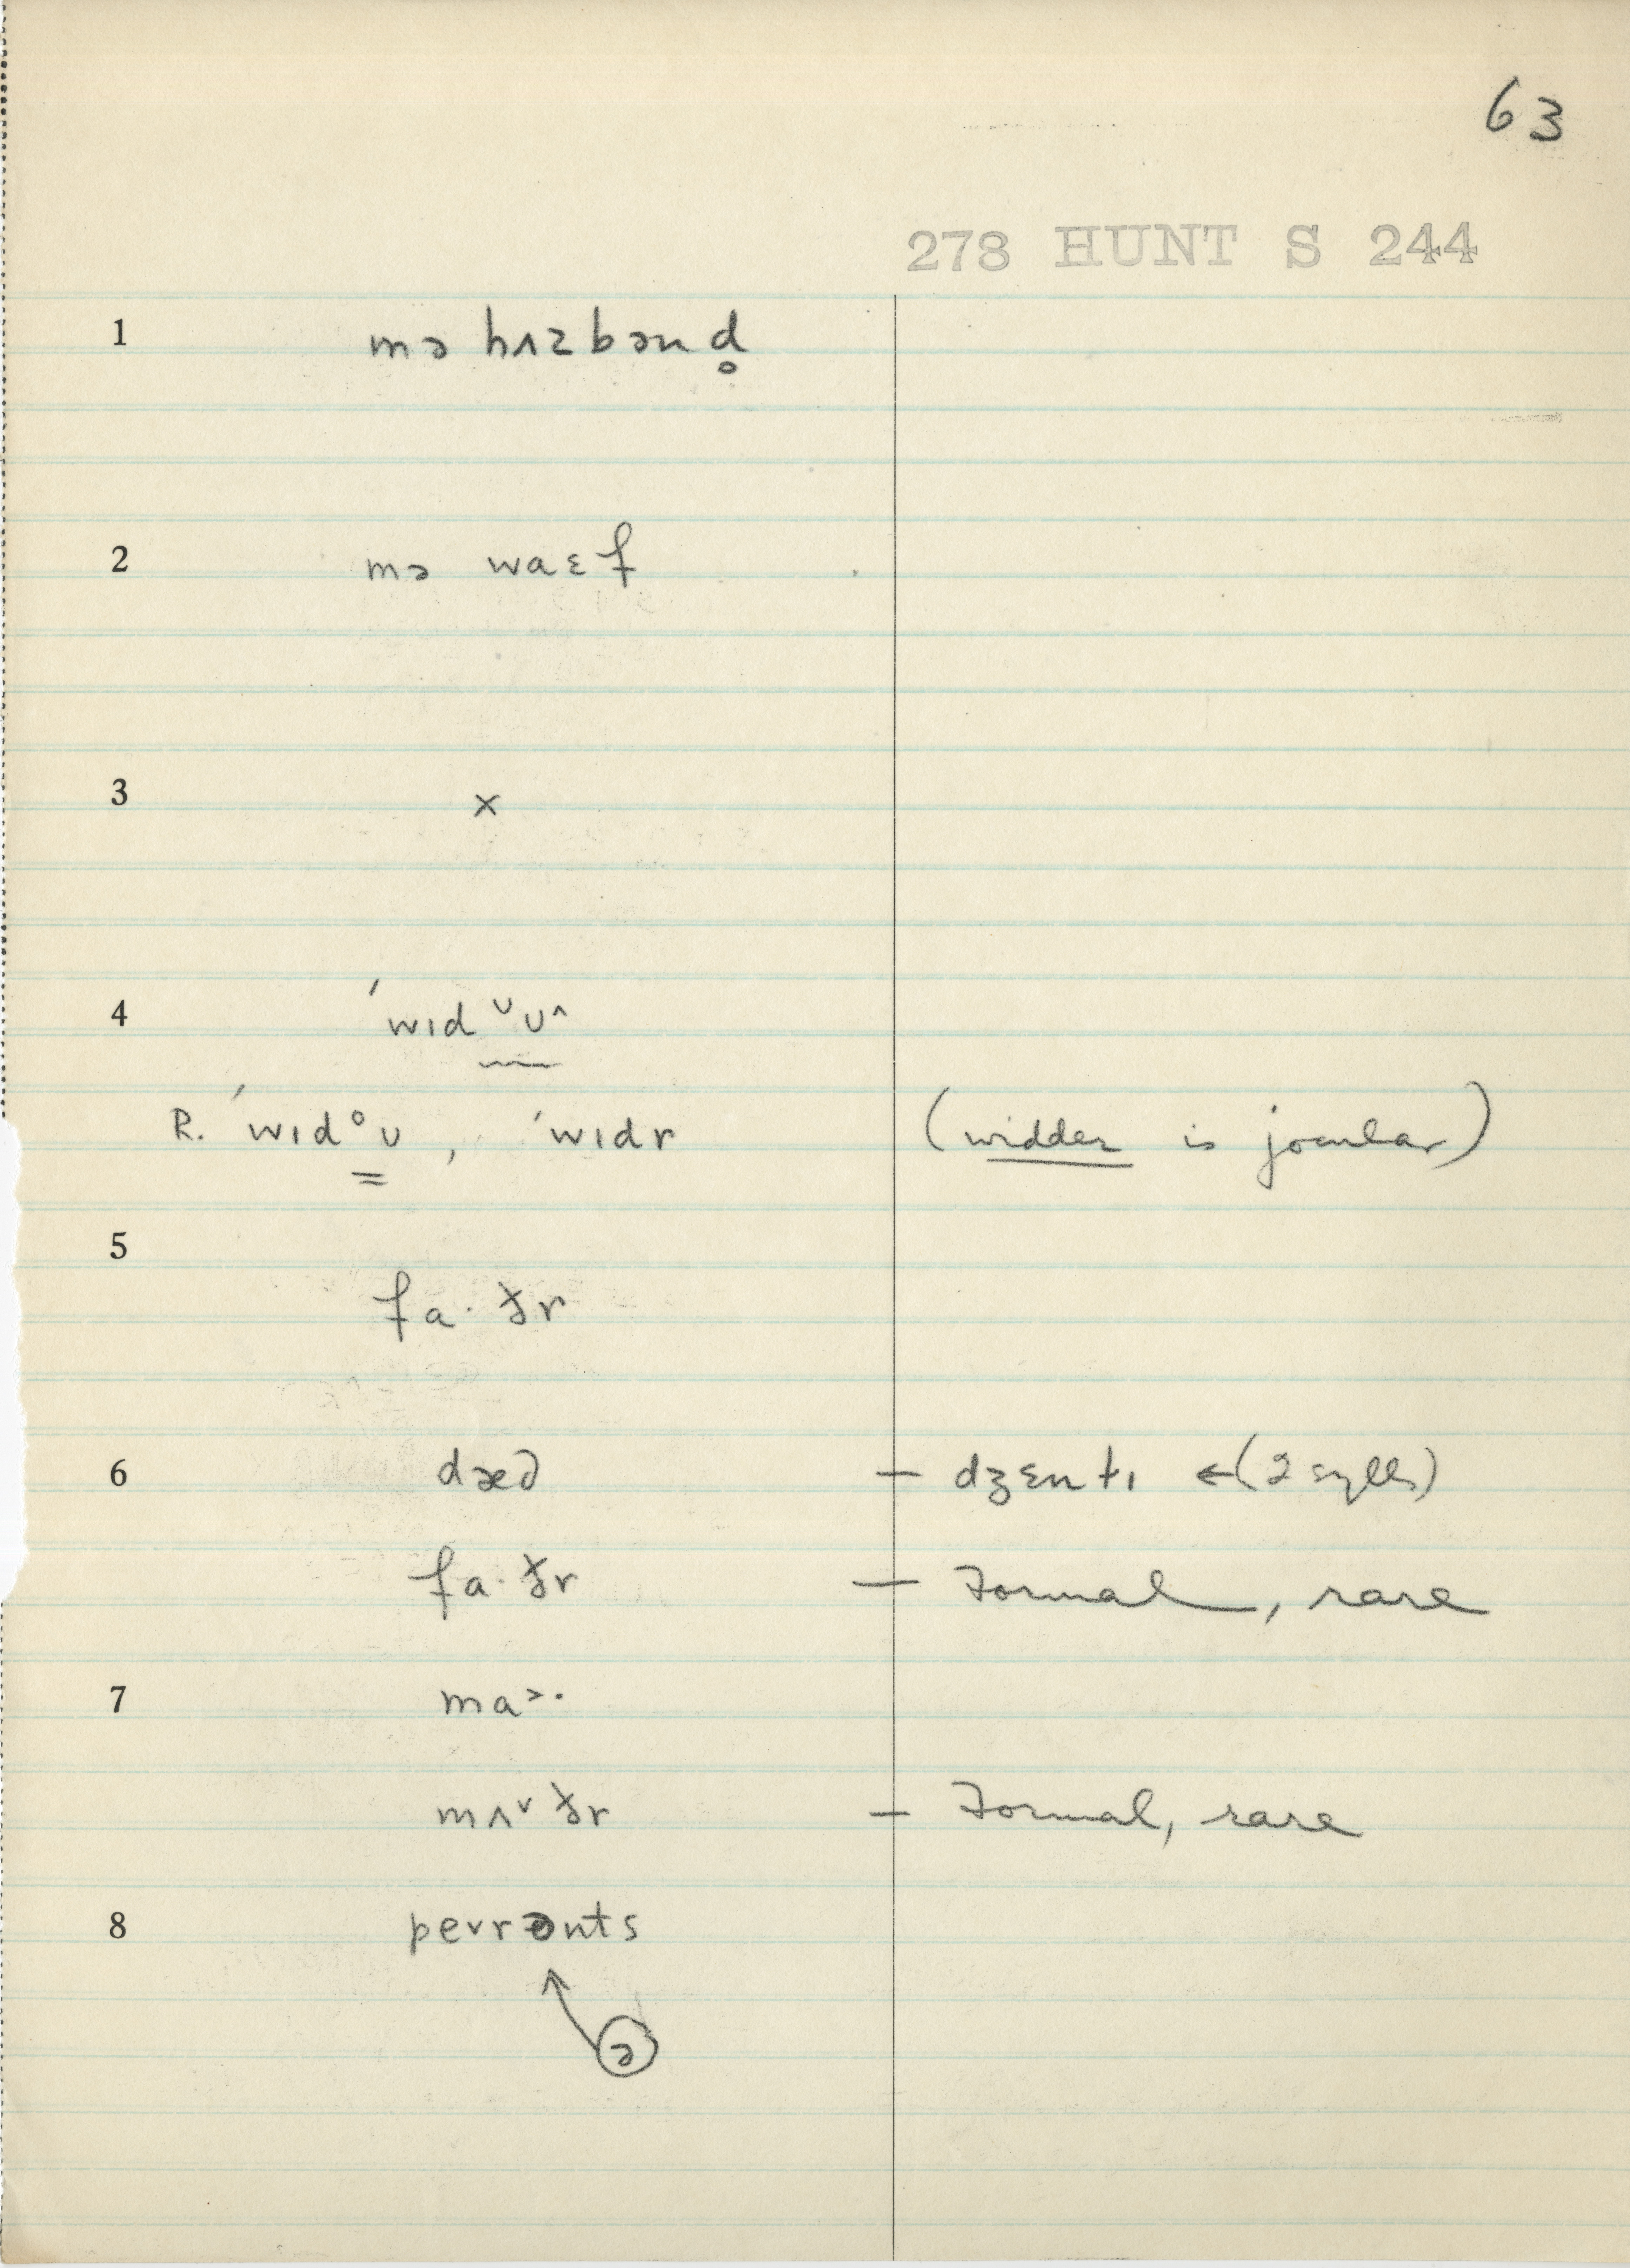 63
278 HUNT S 244
1 mə hʌzbənd̥
2 mə waɛf
3 ×
4 ´wɪd ᵕʊ^
R. ´wɪd°ʊ, ´wɪdr (widder is jocular)
5
fa·ðr
6 dæd — dʒɛntɪ ←(2 sylls)
fa·ðr — Formal, rare
7 ma˃·
mʌ˅ðr — Formal, rare
8 pe˅rənts
ə